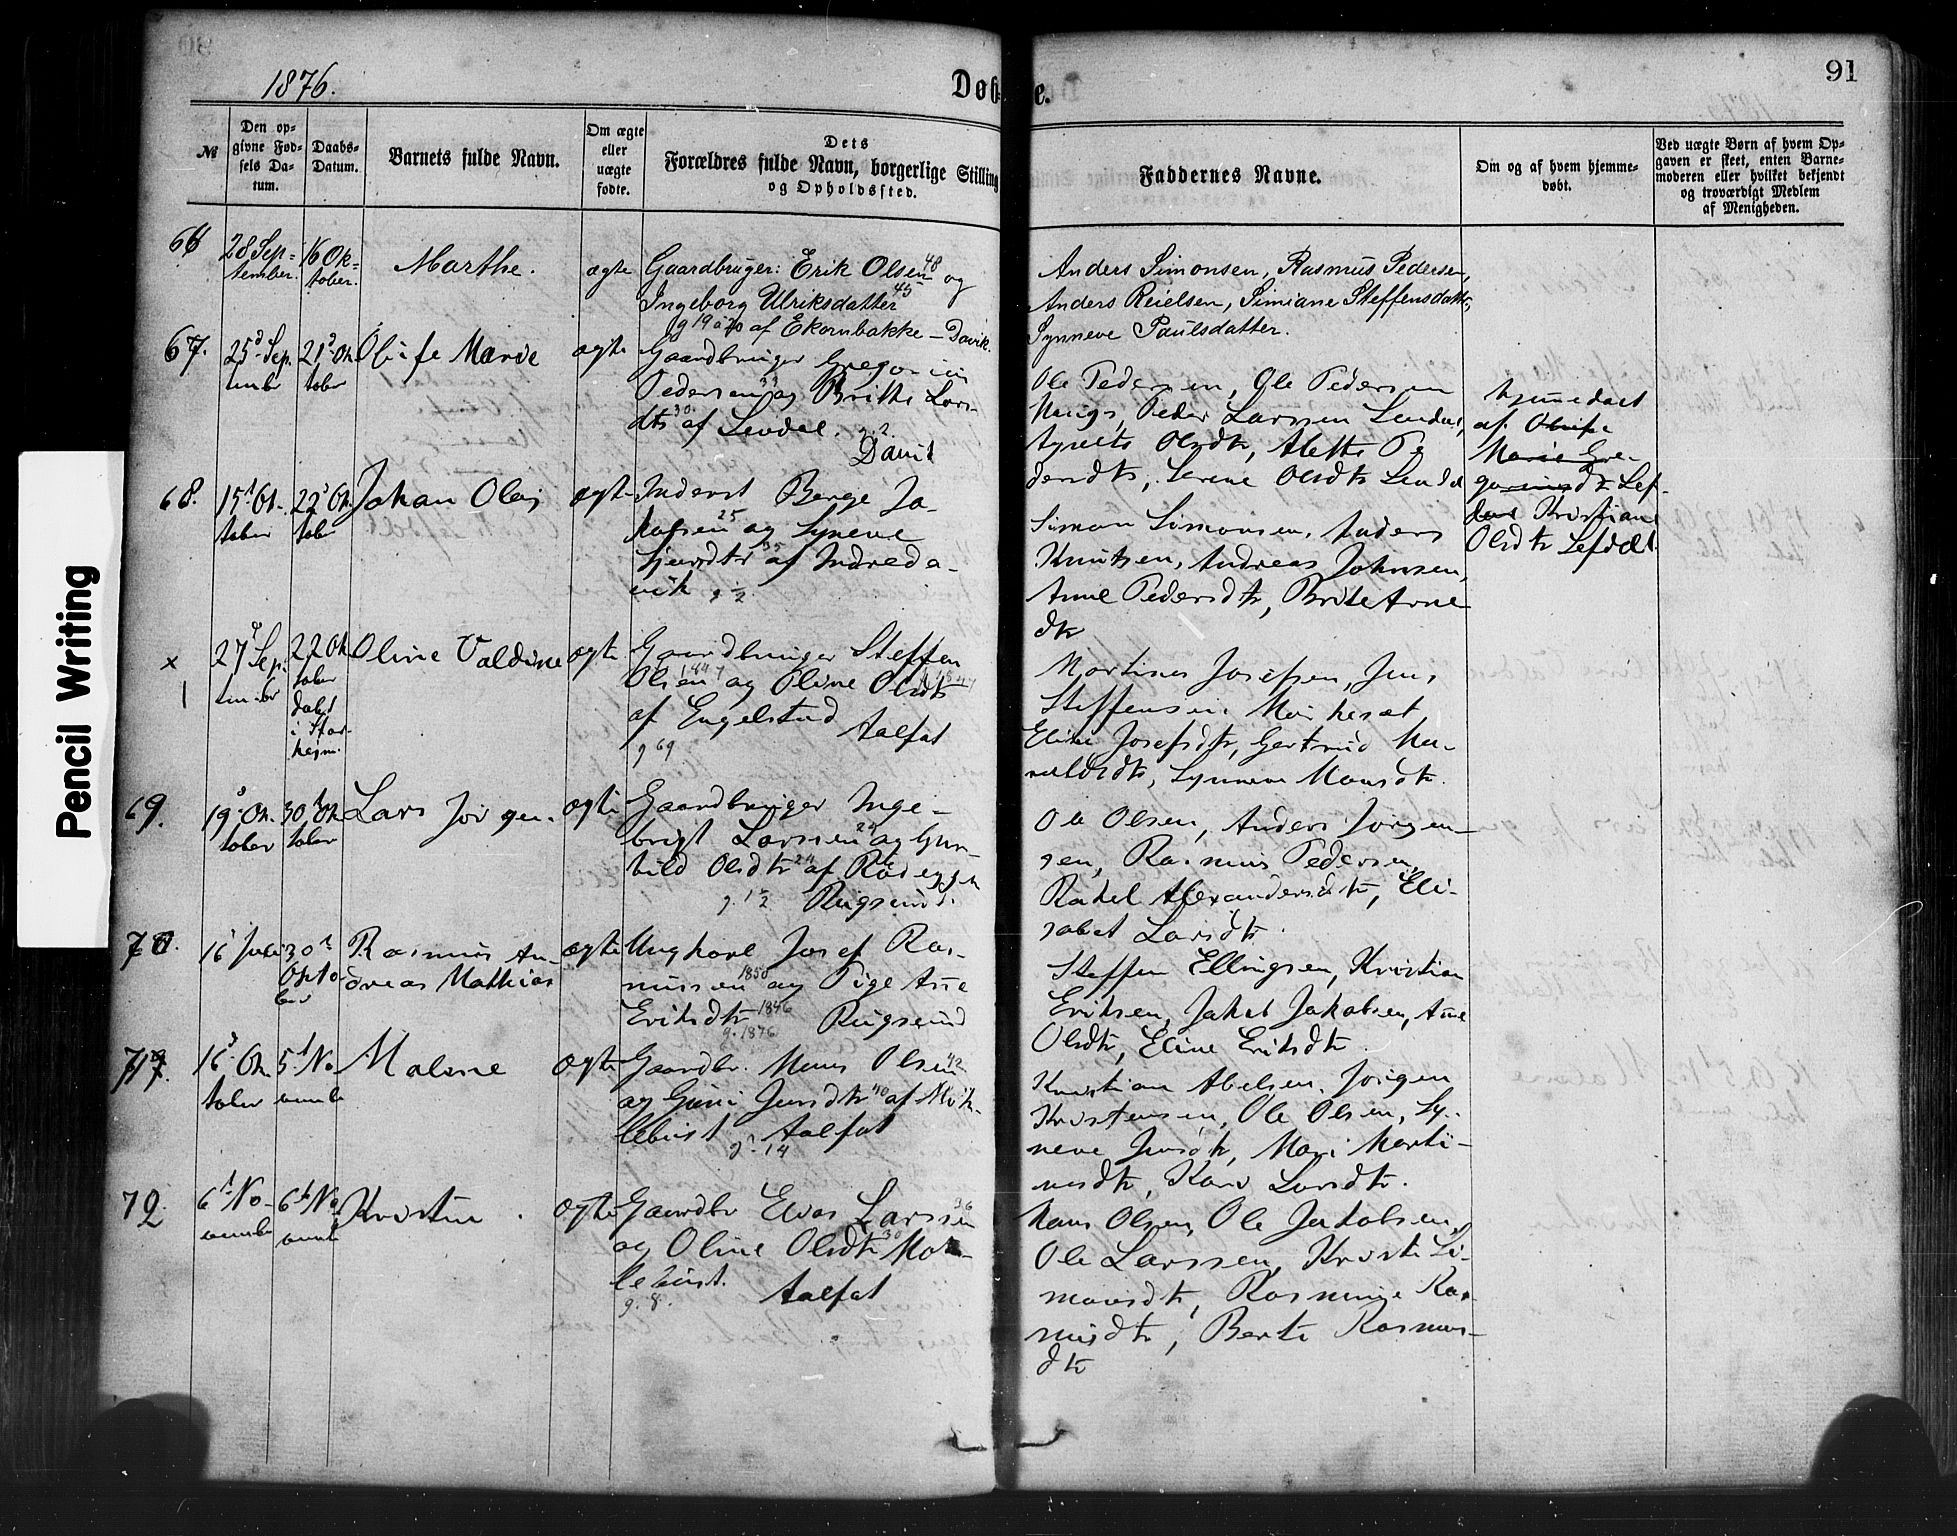 91
1876.
Døb-
e.
№
Den op-
givne Fød-
sels Da-
tum.
Daabs-
Datum.
Barnets fulde Navn.
Om ægte
eller
uægte
fødte.
Dets
Forældres fulde Navn, borgerlige Stilling
og Opholdssted.
Faddernes Navne.
Om og af hvem hjemme-
døbt.
Ved uægte Børn af hvem Op-
gaven er skeet, enten Barne-
moderen eller hvilket bekjendt
og troværdigt Medlem
af Menigheden.
66
28 Sep-
tember.
16 Ok-
tober.
Marthe.
ægte
Gaardbruger: Erik Olsen 48 og
Ingeborg Ulriksdatter 45
g 19 a 20 af Ekornbakke – Davik.
Anders Simonsen, Rasmus Pedersen,
Anders Reielsen, Simiane Steffensdatter,
Synneve Paulsdatter.
67.
25 Sep.
tember
21 Ok
tober
Olufe Marie
ægte
Gaardbruger Gregorius
Pedersen 33 og Brithe Lars-
dtr 30 af Levdal.
Davik
Ole Pedersen, Ole Pedersen
Peder Larssen
Olsdtr, Alette Pe
dersdtr, Serine Olsdtr
Hjemmedøbt
af Olufe
Marie Gre-
Kristiane
Olsdtr Lefdal
68.
15 Ok-
tober
22 Ok
tober
Johan Olaj
ægte
Inderst Berge Ja-
kobsen 25 og Synneve
35 af Indreda-
vik g 2
Simon Simonsen, Anders
Knutsen, Andreas Johnsen,
Anne Pedersdtr, Brite Arne
dtr
x
1
27 Sep.
tember
22 Ok
tober
døbt
i Star-
hejm.
Oline Valdine
ægte
Gaardbruger Steffen
Olsen og Oline Olsdtr
af Engelstad Aalfot
g 69
Martinus Josefsen, Jens
Steffensen
Eline Josefsdtr, Gertrud Ma-
Synneve Monsdtr.
69.
19 Ok.
tober
30 Ok
tober
Lars Jørgen.
ægte
Gaardbruger Inge-
brigt Larssen 25 og Gun-
hild Olsdtr 24 af Rødeggen
g. 1 2 Rugsund.
Ole Olsen, Anders Jørgen-
sen, Rasmus Pedersen,
Rakel Alexandersdtr, Eli-
sabet Larsdtr.
70.
16 Juli
30
Okto-
ber
Rasmus An-
dreas Mathias
ægte
Ungkarl Josef Ras-
mussen 1850 og Pige Ane
Eriksdtr 1846 Rugsund
g. 1876
Steffen Ellingsen, Kristian
Eriksen, Jakob Jakobsen, Ane
Olsdtr, Eline Eriksdtr.
71.
16 Ok
tober
5 No
vembe
Malene
ægte
Gaardbr. Mons Olsen 42
og Guri Jensdtr 40 af Møk-
lebust Aalfot
g. 14
Kristian Abelsen, Jørgen
Kristensen, Ole Olsen, Sy-
neve Jensdtr, Mari Marti-
nusdtr, Kari Larsdtr.
72
6 No-
vembe
6 No
vembe
Kristine.
ægte
Gaardbr Elias Larssen 36
og Oline Olsdtr 30 Mø-
klebust.
g. 8. Aalfot
Hans Olsen, Ole Jakobsen,
Ole Larssen, Kristi Si-
monsdtr, Rasmine Ras-
musdtr, Berte Rasmus-
dtr
Pencil Writing